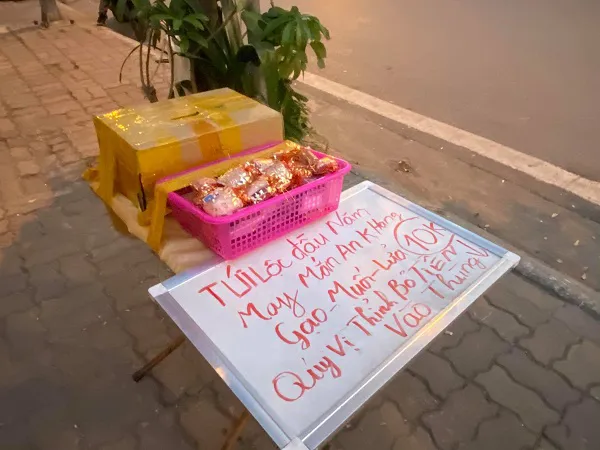 TÚI Lộc đầu Năm
May Mắn An Khang
Gạo - Muối - Lửa 10K
Qúy Vị Thỉnh Bỏ TIỀN
Vào Thùng